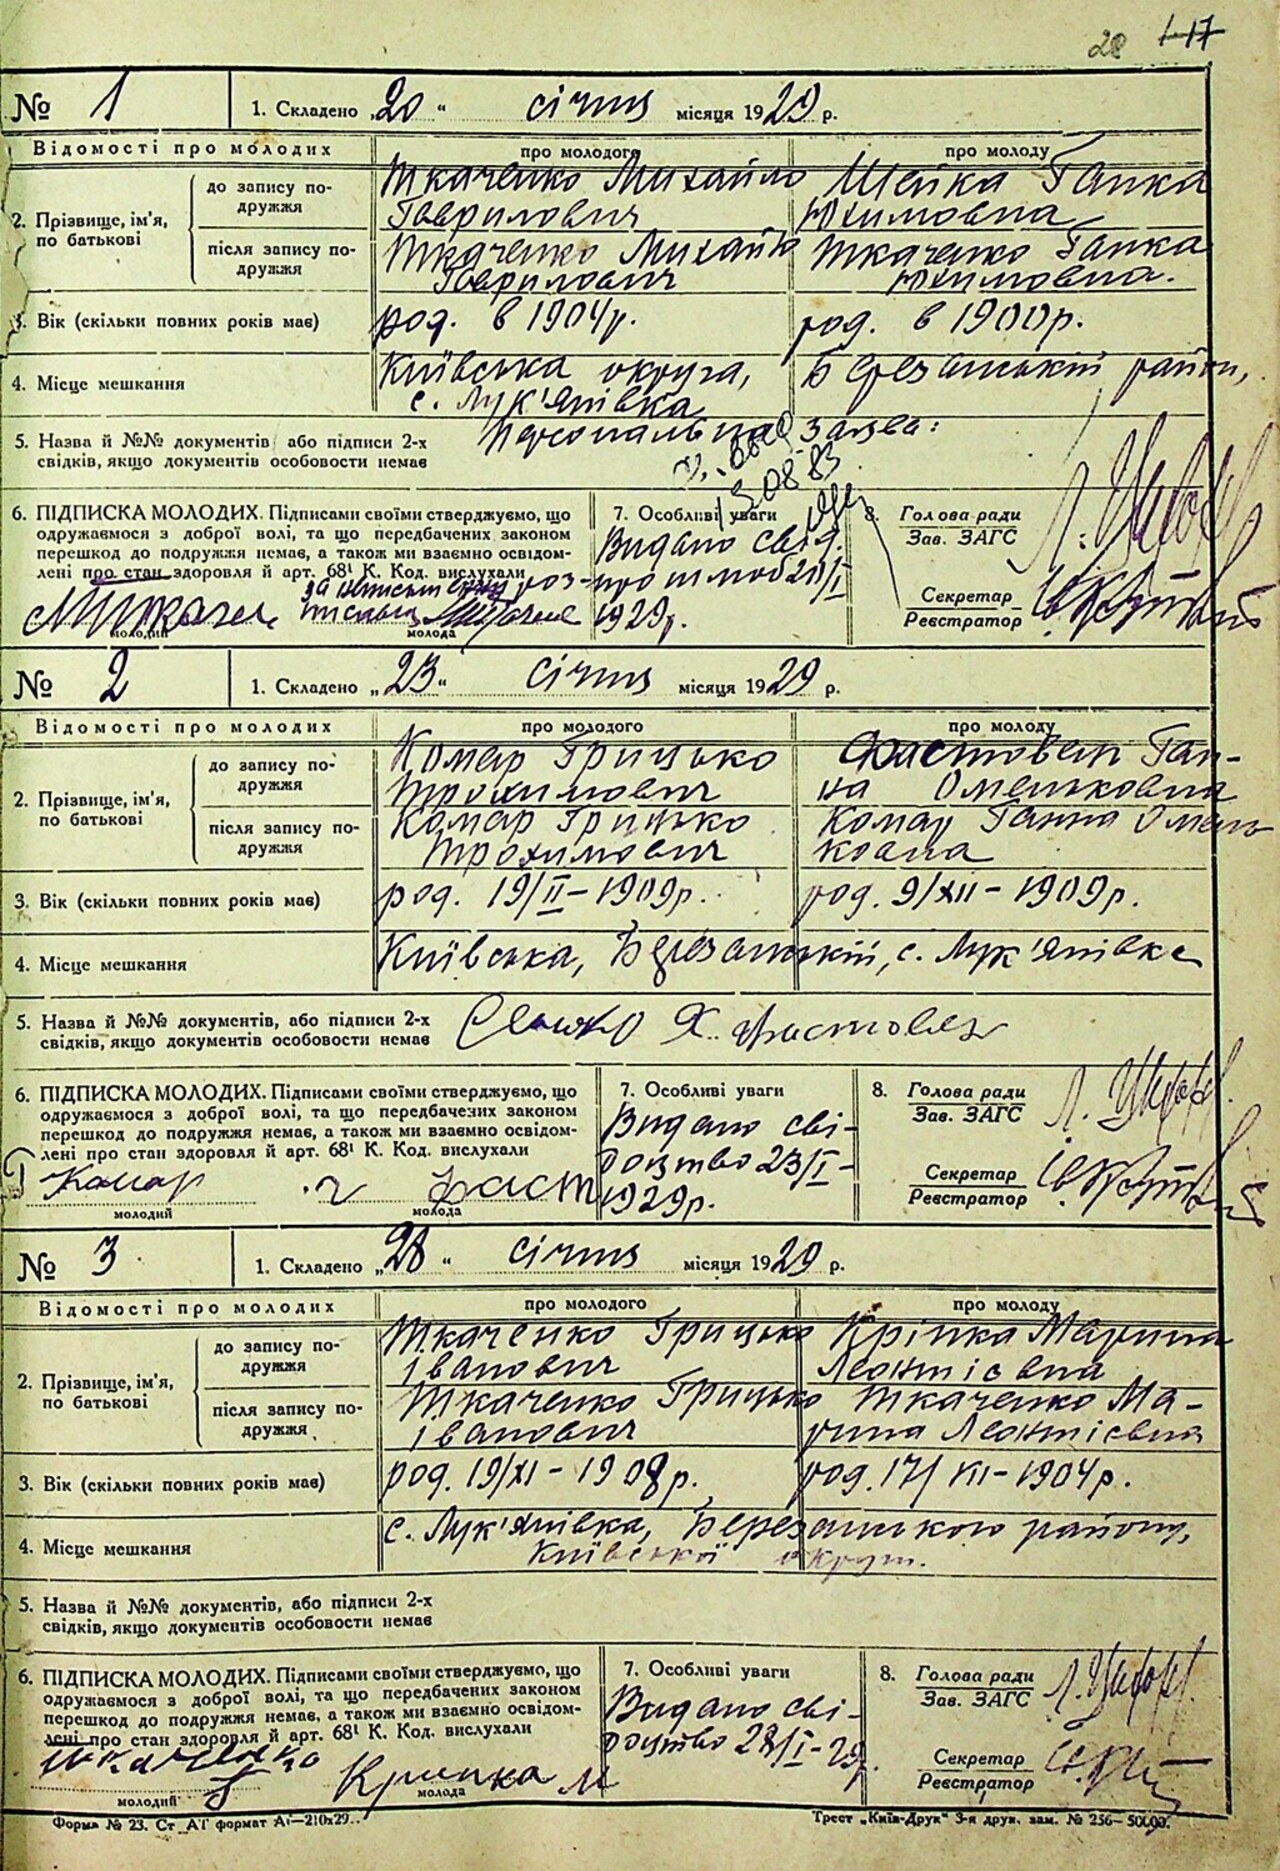 28 117
№ 1 1. Складено „20“ січня місяця 1929 р.
Відомості про молодих про молодого про молоду
2. Прізвище, ім'я, по батькові
до запису подружжя
Ткаченко Михайло Шейка Гапка
Гаврилович Юхимовна
після запису подружжя
Ткаченко Михайло Ткаченко Гапка
Гаврилович Юхимовна.
3. Вік (скільки повних років має) род. в 1904р. род. в 1900р.
4. Місце мешкання Київська округа, Березанський район,
с. Лук'янівка
5. Назва й №№ документів або підписи 2-х Персональна заява:
свідків, якщо документів особовости немає
30883
6. ПІДПИСКА МОЛОДИХ. Підписами своїми стверджуємо, що
одружаємося з доброї волі, та що передбачених законом
перешкод до подружжя немає, а також ми взаємно освідом-
лені про стан здоровля й арт. 68¹ К. Код. вислухали
молодий молода
7. Особливі уваги
Видано свід.
1929р.
8. Голова ради
Зав. ЗАГС
Секретар
Реєстратор
№ 2 1. Складено „23“ січня місяця 1929 р.
Відомості про молодих про молодого про молоду
2. Прізвище, ім'я, по батькові
до запису подружжя
Комар Грицько Фастовец Ган-
Трохимович на Омельковна
після запису подружжя
Комар Грицько Комар Ганна Омель
Трохимович ковна
3. Вік (скільки повних років має) род. 19/II–1909р. род. 9/XII–1909р.
4. Місце мешкання Київська, Березанський, с. Лук'янівка
5. Назва й №№ документів, або підписи 2-х
свідків, якщо документів особовости немає
6. ПІДПИСКА МОЛОДИХ. Підписами своїми стверджуємо, що
одружаємося з доброї волі, та що передбачених законом
перешкод до подружжя немає, а також ми взаємно освідом-
лені про стан здоровля й арт. 68¹ К. Код. вислухали
Комар
молодий молода
7. Особливі уваги
Видано сві-
доцтво 23/I–
1929р.
8. Голова ради
Зав. ЗАГС
Секретар
Реєстратор
№ 3 1. Складено „28“ січня місяця 1929 р.
Відомості про молодих про молодого про молоду
2. Прізвище, ім'я, по батькові
до запису подружжя
Ткаченко Грицько Кріпка Марина
Іванович Леонтієвна
після запису подружжя
Ткаченко Грицько Ткаченко Ма-
Іванович рина Леонтієвна
3. Вік (скільки повних років має) род. 19/XI–1908р. род. 17/VII–1904р.
4. Місце мешкання с. Лук'янівка, Березанського району,
Київської округи.
5. Назва й №№ документів, або підписи 2-х
свідків, якщо документів особовости немає
6. ПІДПИСКА МОЛОДИХ. Підписами своїми стверджуємо, що
одружаємося з доброї волі, та що передбачених законом
перешкод до подружжя немає, а також ми взаємно освідом-
лені про стан здоровля й арт. 68¹ К. Код. вислухали
Ткаченко Г Крипка М
молодий молода
7. Особливі уваги
Видано сві-
доцтво 28/I–29р.
8. Голова ради
Зав. ЗАГС
Секретар
Реєстратор
Форма № 23. Ст „АІ“ формат А₁—210х29.. Трест „Київ-Друк“ 3-я друк. зам. № 256—50000.